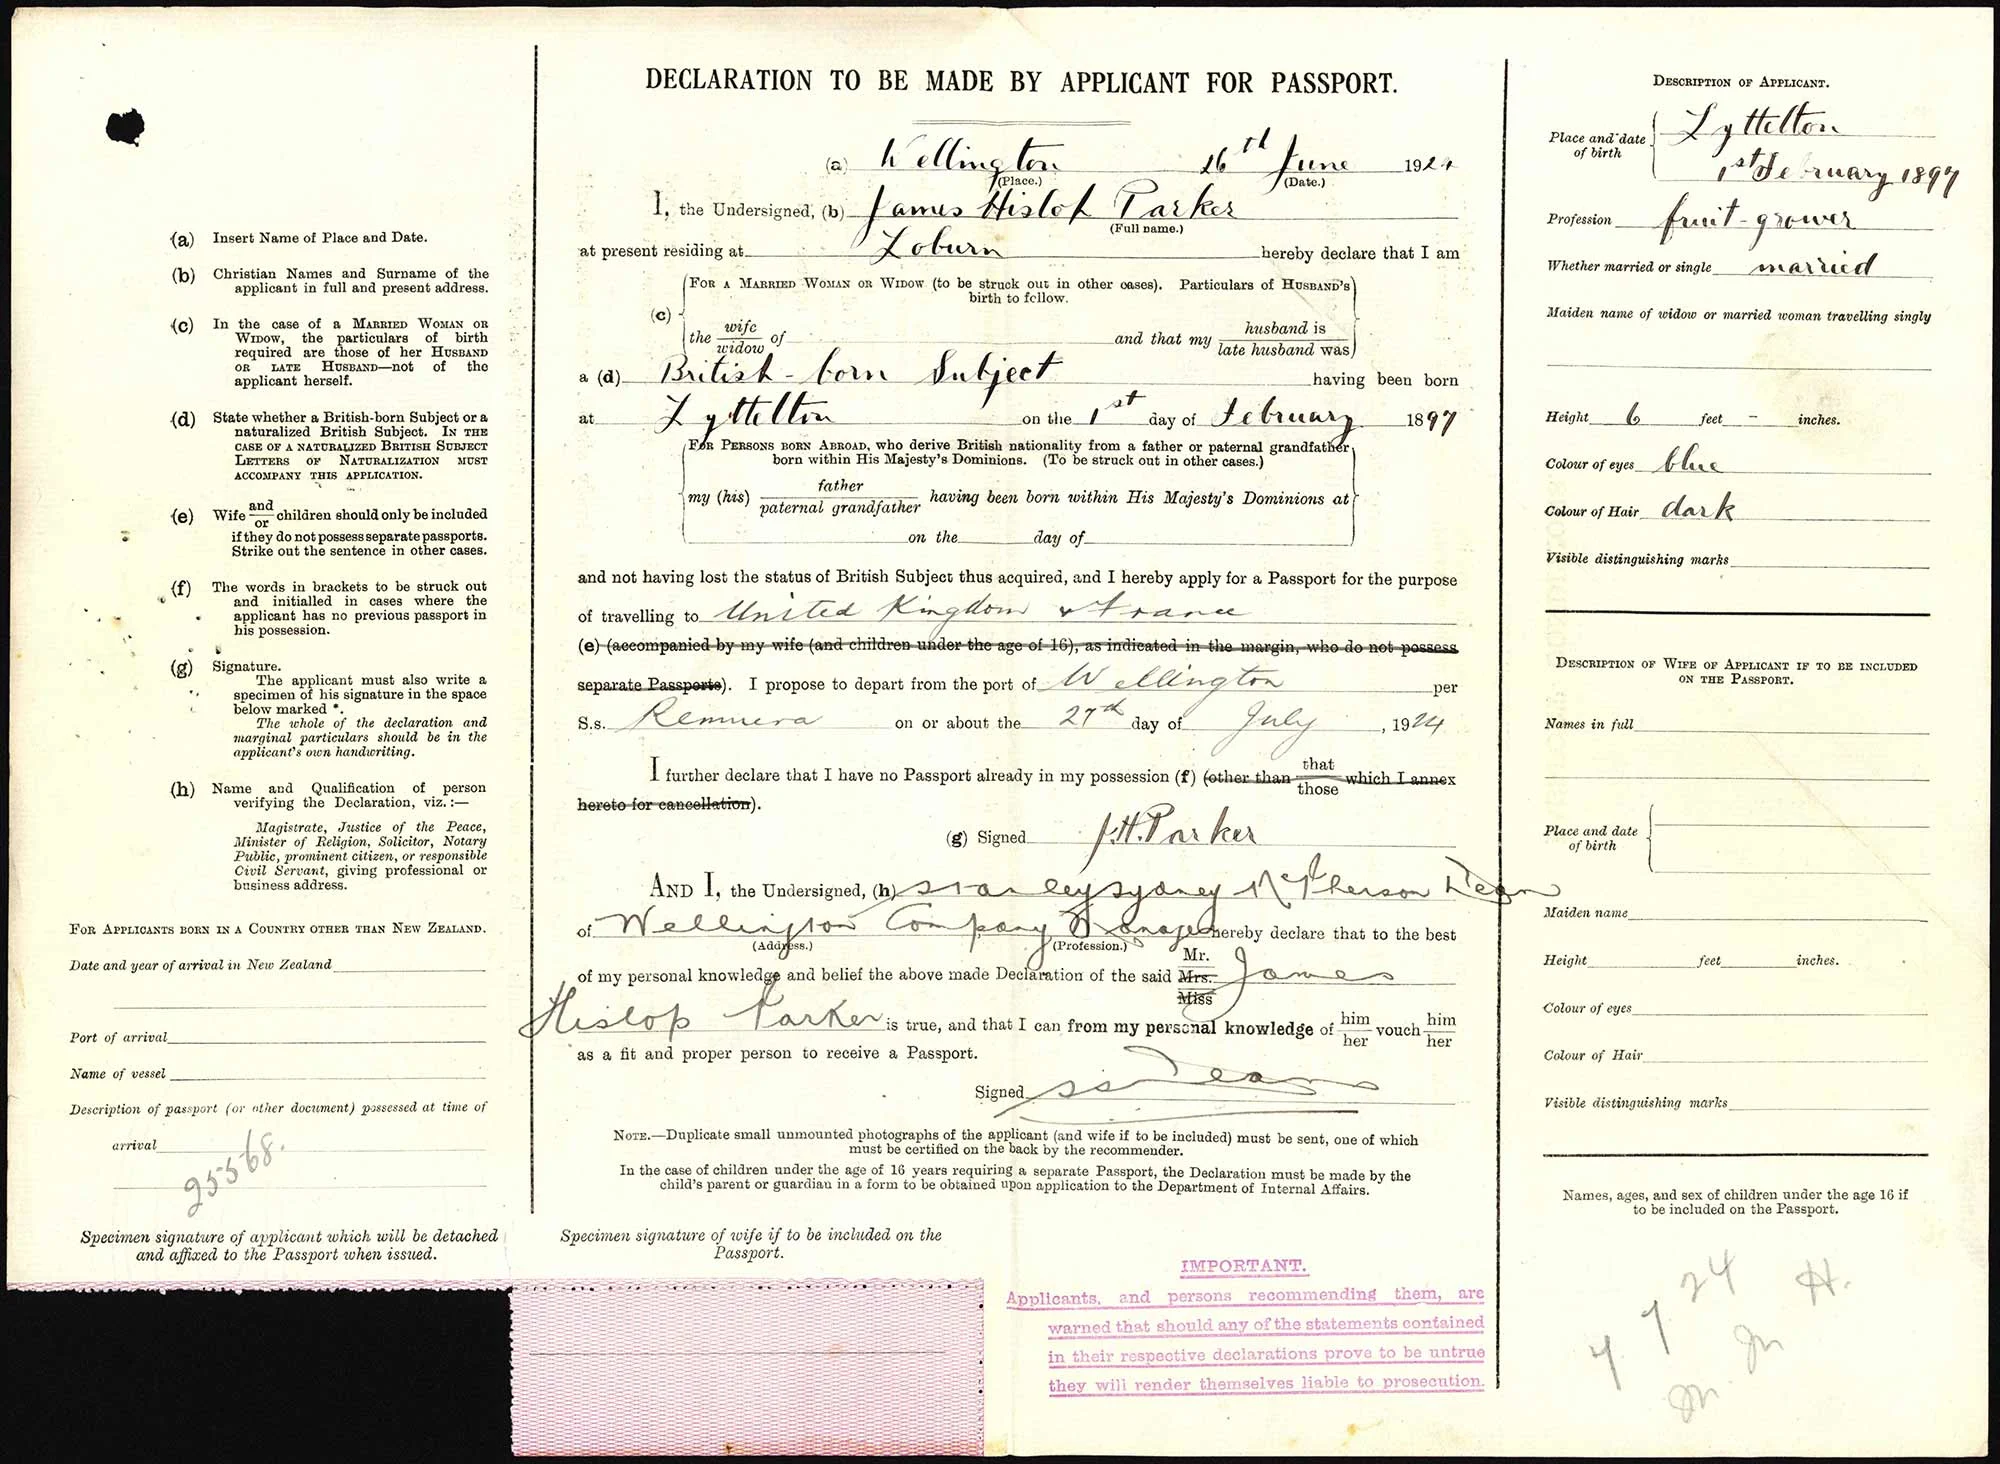 DECLARATION TO BE MADE BY APPLICANT FOR PASSPORT.
(a) Wellington 26th June 1924
(Place.) (Date.)
I, the Undersigned, (b) James Hislop Parker
(Full name.)
at present residing at Loburn hereby declare that I am
(c) FOR A MARRIED WOMAN OR WIDOW (to be struck out in other cases). Particulars of HUSBAND'S
birth to follow.
the wife of and that my husband is
widow late husband was
a (d) British-born Subject having been born
at Lyttelton on the 1st day of February 1897
FOR PERSONS BORN ABROAD, who derive British nationality from a father or paternal grandfather
born within His Majesty's Dominions. (To be struck out in other cases.)
my (his) father having been born within His Majesty's Dominions at
paternal grandfather
on the day of
and not having lost the status of British Subject thus acquired, and I hereby apply for a Passport for the purpose
of travelling to United Kingdom & France
(e) (accompanied by my wife (and children under the age of 16), as indicated in the margin, who do not possess
separate Passports). I propose to depart from the port of Wellington per
S.s. Remuera on or about the 27th day of July, 1924
I further declare that I have no Passport already in my possession (f) (other than that which I annex
those
hereto for cancellation).
(g) Signed J.H. Parker
AND I, the Undersigned, (h) Stanley Sydney McPherson Dean
of Wellington Company Manager hereby declare that to the best
(Address.) (Profession.)
of my personal knowledge and belief the above made Declaration of the said Mr. James
Mrs.
Miss
Hislop Parker is true, and that I can from my personal knowledge of him vouch him
her her
as a fit and proper person to receive a Passport.
Signed SSDean
NOTE.—Duplicate small unmounted photographs of the applicant (and wife if to be included) must be sent, one of which
must be certified on the back by the recommender.
In the case of children under the age of 16 years requiring a separate Passport, the Declaration must be made by the
child's parent or guardian in a form to be obtained upon application to the Department of Internal Affairs.
(a) Insert Name of Place and Date.
(b) Christian Names and Surname of the
applicant in full and present address.
(c) In the case of a MARRIED WOMAN OR
WIDOW, the particulars of birth
required are those of her HUSBAND
OR LATE HUSBAND—not of the
applicant herself.
(d) State whether a British-born Subject or a
naturalized British Subject. IN THE
CASE OF A NATURALIZED BRITISH SUBJECT
LETTERS OF NATURALIZATION MUST
ACCOMPANY THIS APPLICATION.
(e) Wife and children should only be included
or
if they do not possess separate passports.
Strike out the sentence in other cases.
(f) The words in brackets to be struck out
and initialled in cases where the
applicant has no previous passport in
his possession.
(g) Signature.
The applicant must also write a
specimen of his signature in the space
below marked *.
The whole of the declaration and
marginal particulars should be in the
applicant's own handwriting.
(h) Name and Qualification of person
verifying the Declaration, viz.:—
Magistrate, Justice of the Peace,
Minister of Religion, Solicitor, Notary
Public, prominent citizen, or responsible
Civil Servant, giving professional or
business address.
FOR APPLICANTS BORN IN A COUNTRY OTHER THAN NEW ZEALAND.
Date and year of arrival in New Zealand
Port of arrival
Name of vessel
Description of passport (or other document) possessed at time of
arrival
25568.
Specimen signature of applicant which will be detached
and affixed to the Passport when issued.
Specimen signature of wife if to be included on the
Passport.
IMPORTANT.
Applicants, and persons recommending them, are
warned that should any of the statements contained
in their respective declarations prove to be untrue
they will render themselves liable to prosecution.
DESCRIPTION OF APPLICANT.
Place and date Lyttelton
of birth 1st February 1897
Profession fruit-grower
Whether married or single married
Maiden name of widow or married woman travelling singly
Height 6 feet - inches.
Colour of eyes blue
Colour of Hair dark
Visible distinguishing marks
DESCRIPTION OF WIFE OF APPLICANT IF TO BE INCLUDED
ON THE PASSPORT.
Names in full
Place and date
of birth
Maiden name
Height feet inches.
Colour of eyes
Colour of Hair
Visible distinguishing marks
Names, ages, and sex of children under the age 16 if
to be included on the Passport.
4 7 24 H.